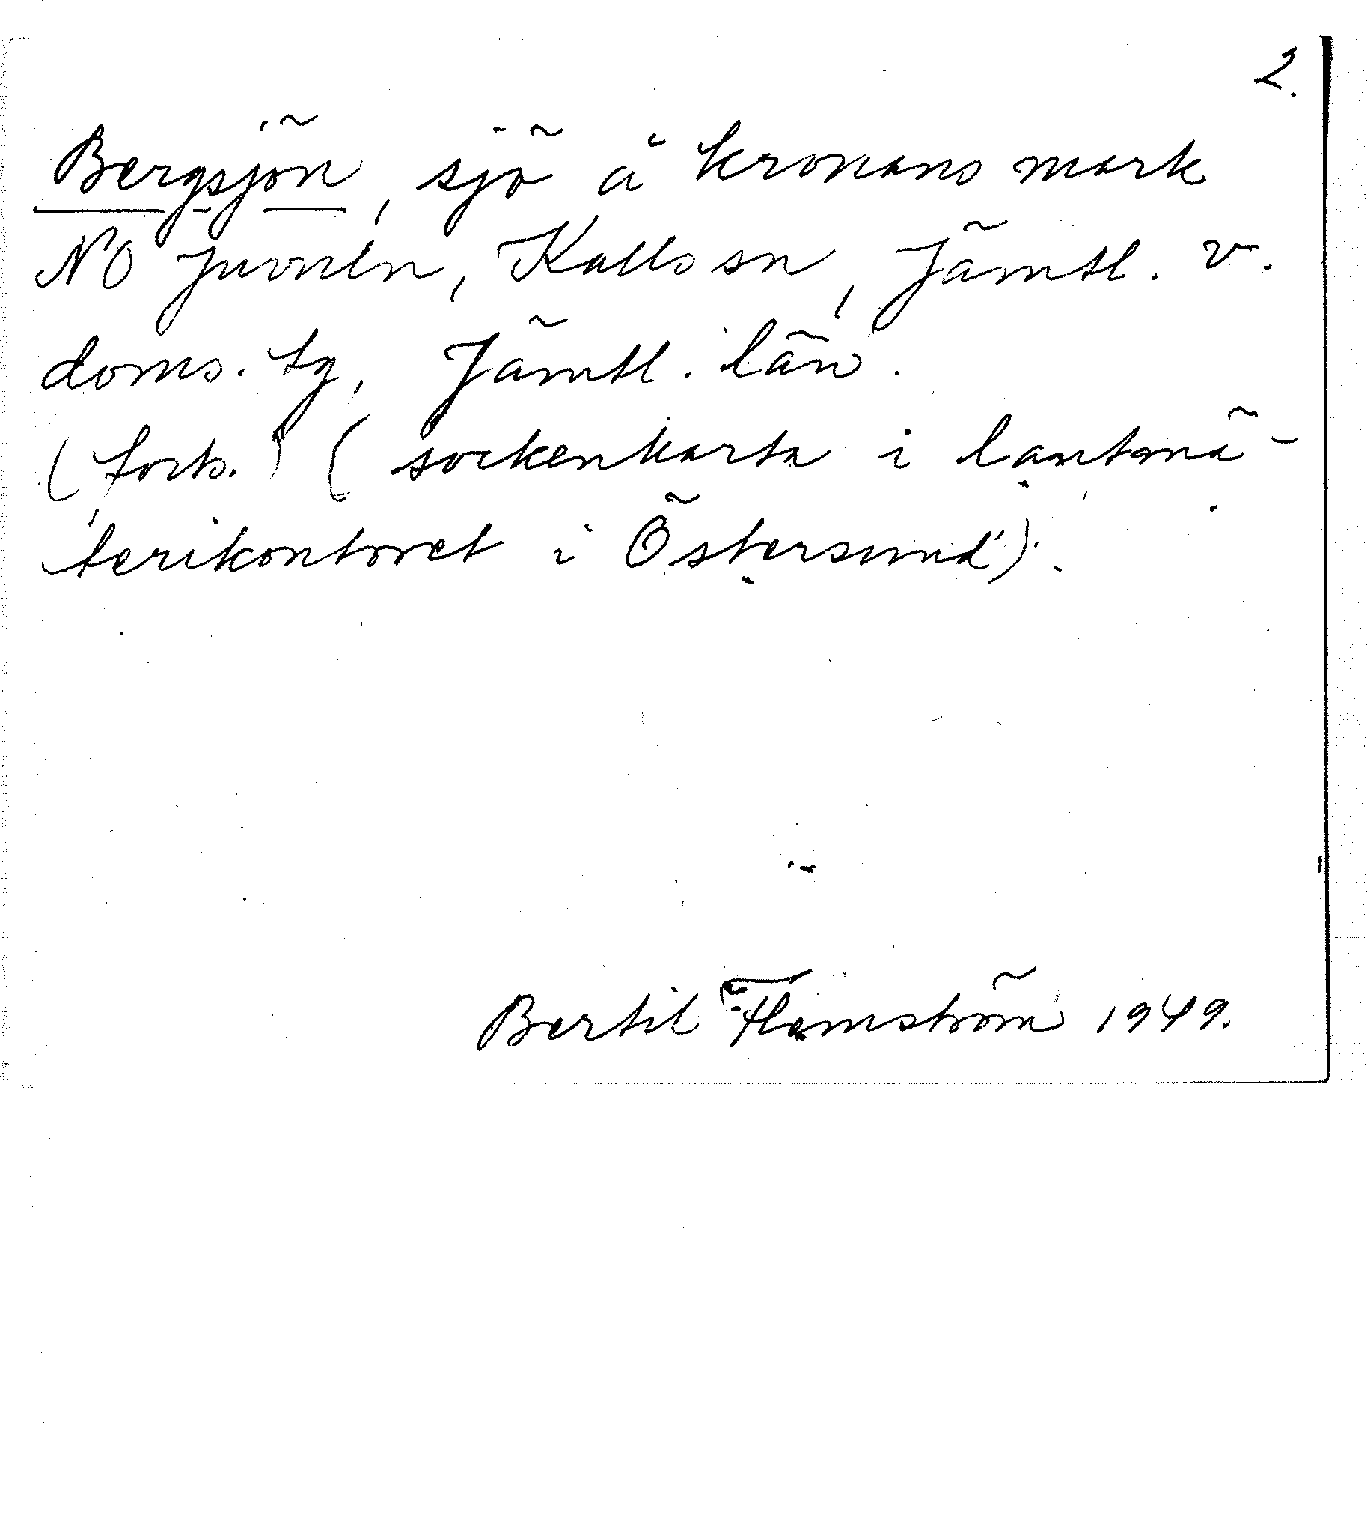 2.
Bergsjön, sjö å kronans mark
NO Juvuln, Kalls sn, Jämtl. v.
doms. tg, Jämtl. län.
(forts.) (sockenkarta i lantmä-
terikontoret i Östersund).
Bertil Flemström 1949.